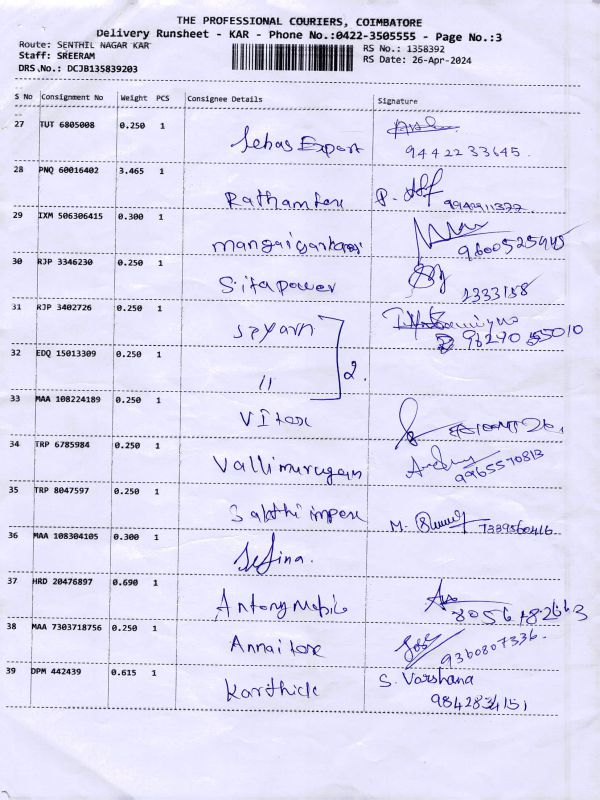 THE PROFESSIONAL COURIERS, COIMBATORE
Delivery Runsheet - KAR - Phone No.:0422-3505555 - Page No.:3
Route: SENTHIL NAGAR KAR
RS No.: 1358392
Staff: SREERAM
RS Date: 26-Apr-2024
DRS.No.: DCJB135839203
S No Consignment No Weight PCS Consignee Details Signature
27 TUT 6805008 0.250 1
Sebas Export
9442233645
28 PNQ 60016402 3.465 1
P.
29 IXM 506306415 0.300 1
9600525945
30 RJP 3346230 0.250 1
Sitapower
31 RJP 3402726 0.250 1
32 EDQ 15013309 0.250 1
11
2.
33 MAA 108224189 0.250 1
34 TRP 6785984 0.250 1
Vallimurugan
9965570813
35 TRP 8047597 0.250 1
M.
7339560416
36 MAA 108304105 0.300 1
Sefina.
37 HRD 20476897 0.690 1
Antony Mobile
38 MAA 7303718756 0.250 1
Jose
9360807336.
39 DPM 442439 0.615 1
Karthick
S. Varshana
9842834151